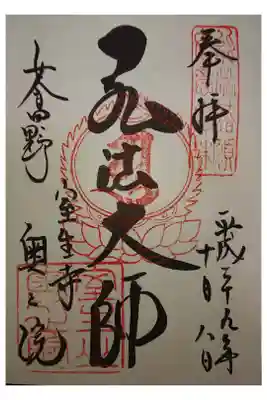 奉拝
平成二十九年
十月八日
弘法大師
女人高野
室生寺
奥之院